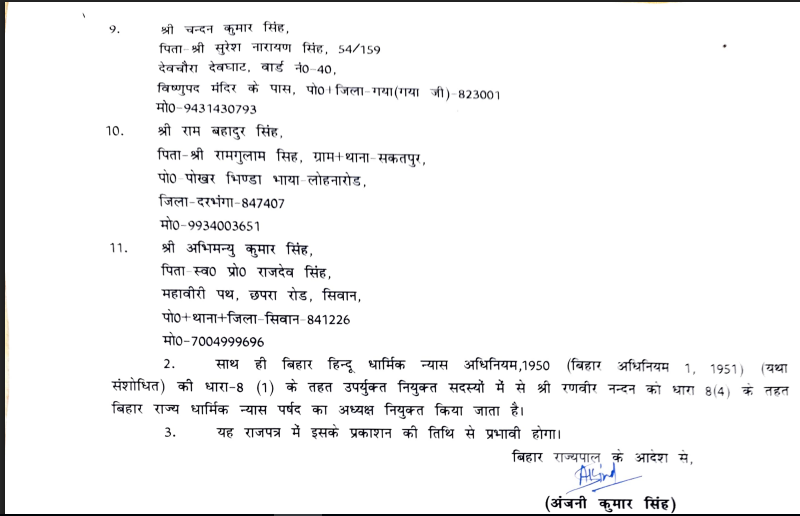 9. श्री चन्दन कुमार सिंह,
पिता-श्री सुरेश नारायण सिंह, 54/159
देवचौरा देवघाट, वार्ड नं0-40,
विष्णुपद मंदिर के पास, पो0+जिला-गया(गया जी)-823001
मो0-9431430793
10. श्री राम बहादुर सिंह,
पिता-श्री रामगुलाम सिह, ग्राम+थाना-सकतपुर,
पो0-पोखर भिण्डा भाया-लोहनारोड,
जिला-दरभंगा-847407
मो0-9934003651
11. श्री अभिमन्यु कुमार सिंह,
पिता-स्व0 प्रो0 राजदेव सिंह,
महावीरी पथ, छपरा रोड, सिवान,
पो0+थाना+जिला-सिवान-841226
मो0-7004999696
2. साथ ही बिहार हिन्दू धार्मिक न्यास अधिनियम,1950 (बिहार अधिनियम 1, 1951) (यथा
संशोधित) की धारा-8 (1) के तहत उपर्युक्त नियुक्त सदस्यों में से श्री रणवीर नन्दन को धारा 8(4) के तहत
बिहार राज्य धार्मिक न्यास पर्षद का अध्यक्ष नियुक्त किया जाता है।
3. यह राजपत्र में इसके प्रकाशन की तिथि से प्रभावी होगा।
बिहार राज्यपाल के आदेश से,
(अंजनी कुमार सिंह)